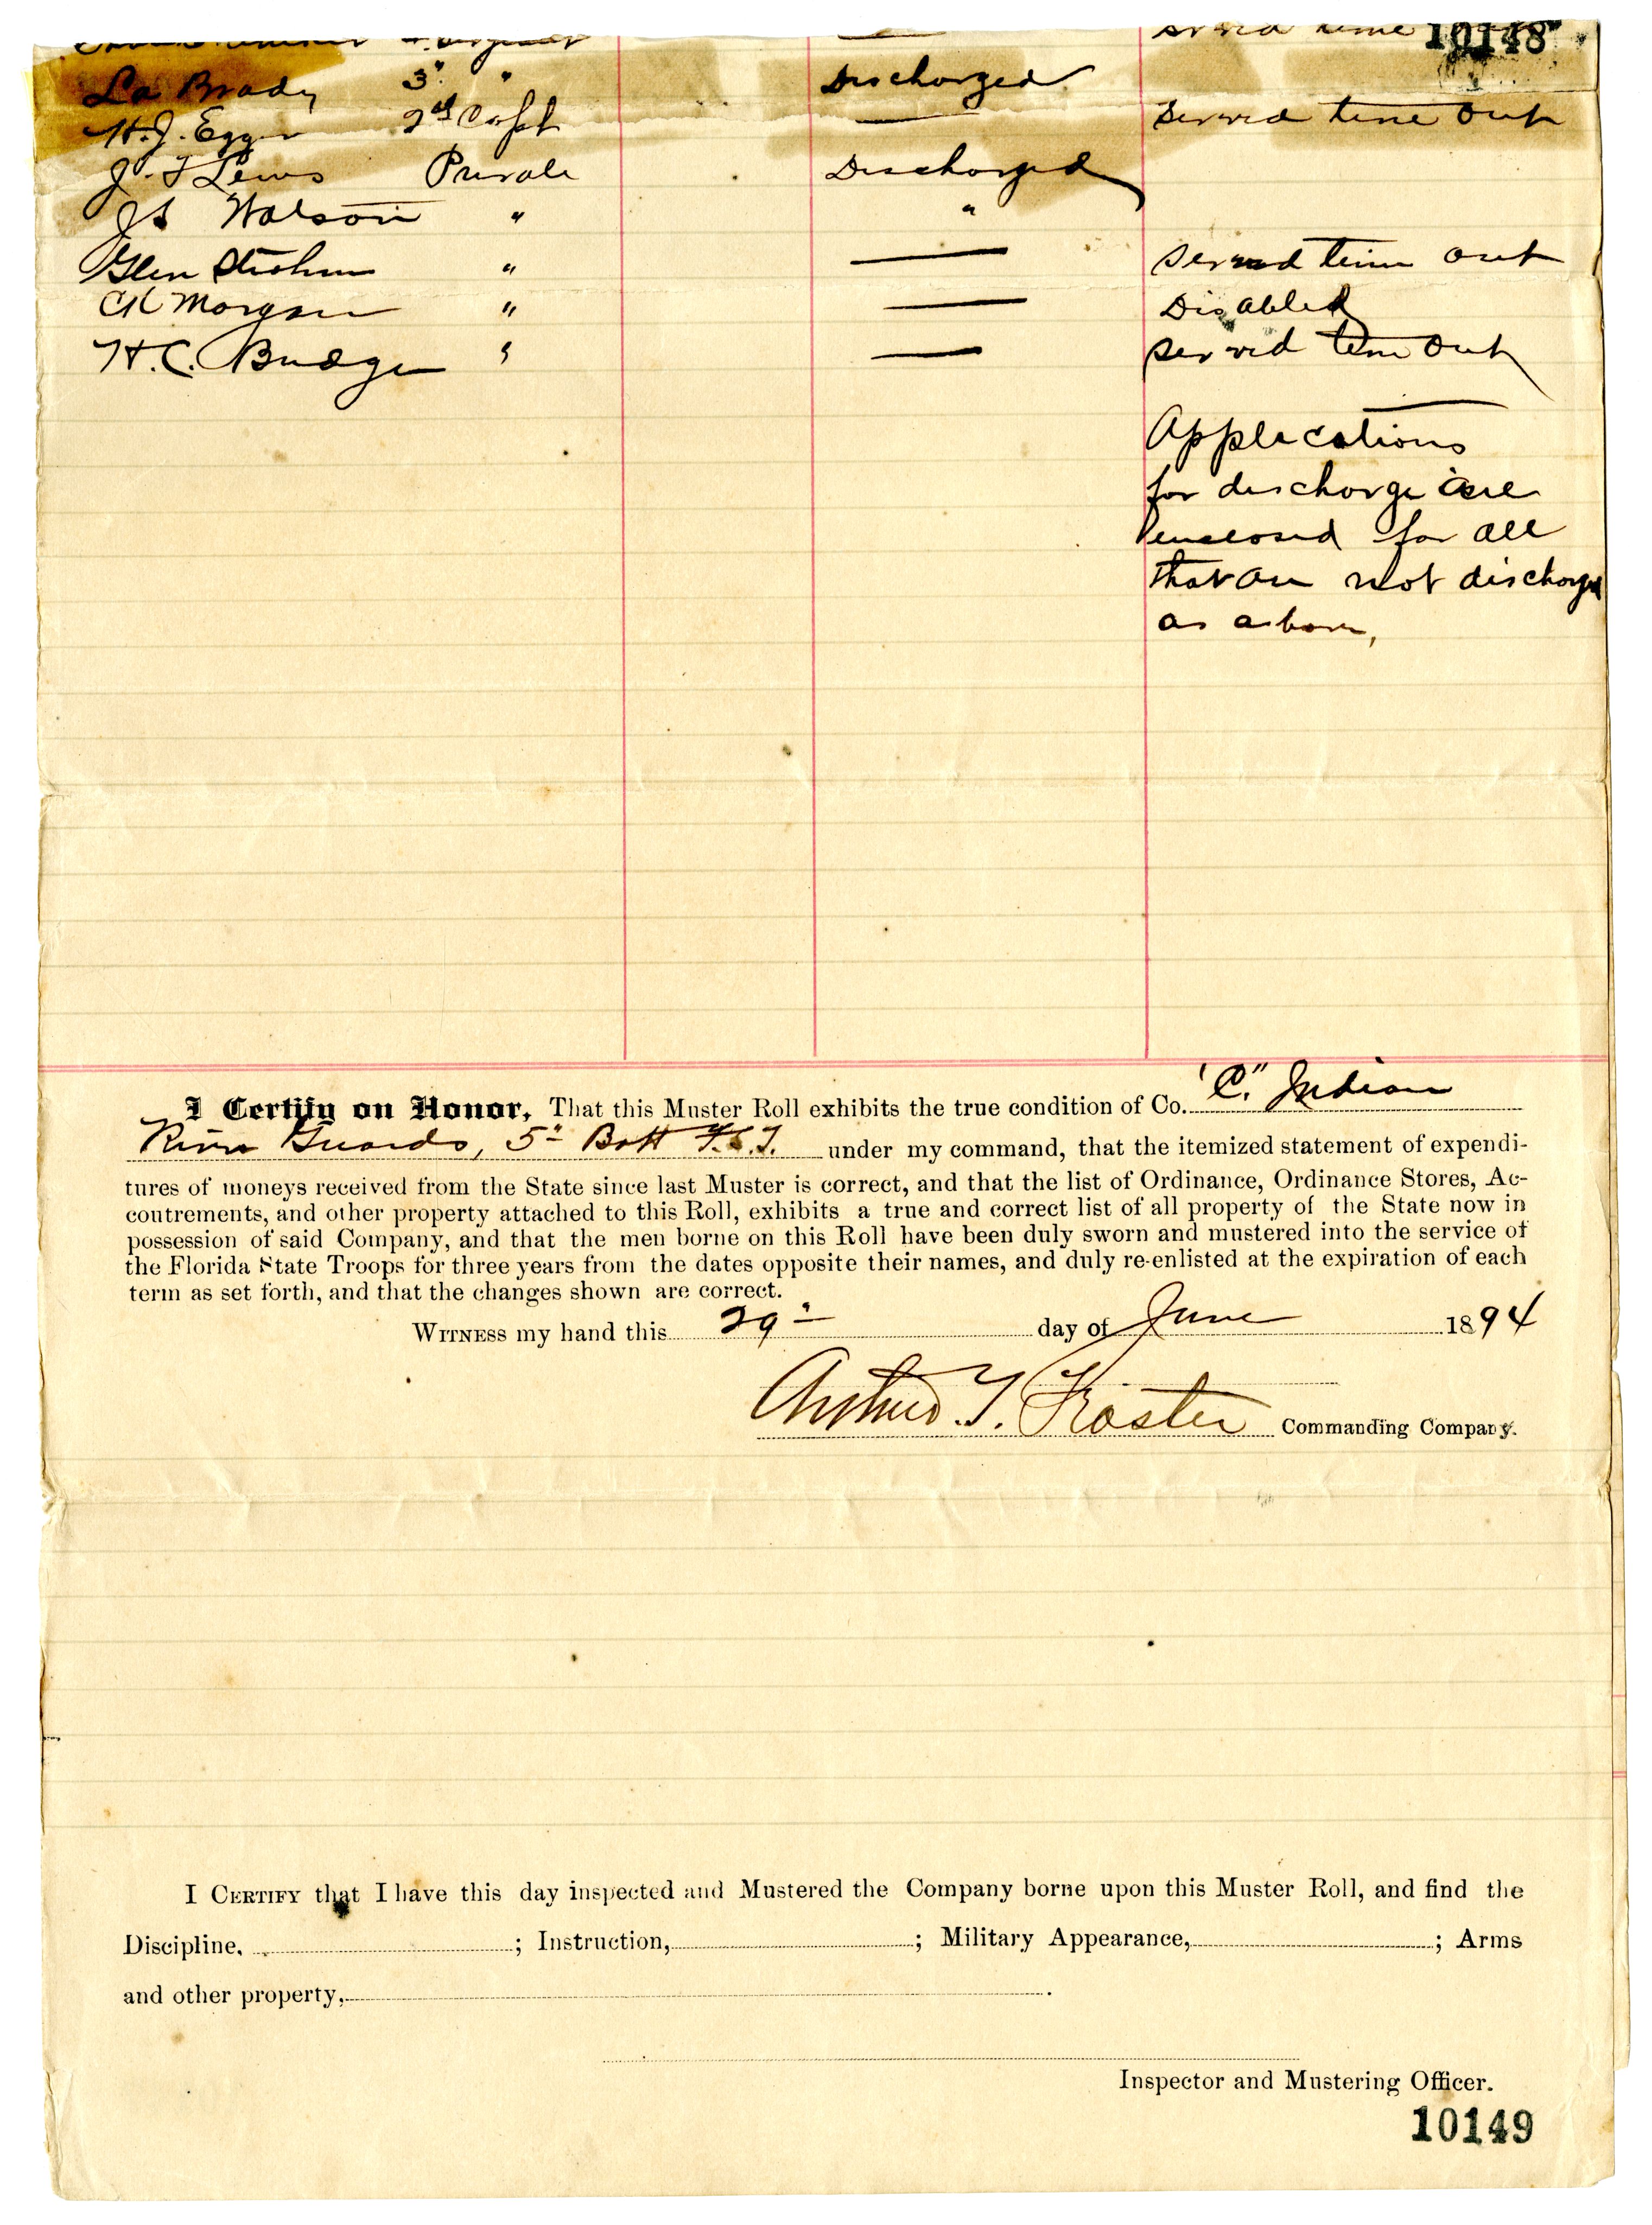 served time 10148
La Brady 3" " Discharged
H.J. Egger 2nd Corpl — Served time out
J. T Lewis Private Discharged
JS Watson " "
Glen Strohm " — served time out
CK Morgan " — Disabled
H.C. Budge " — served time out
Applications
for discharge are
enclosed for all
that are not discharged
as above,
I Certify on Honor, That this Muster Roll exhibits the true condition of Co. "C." Indian
River Guards, 5" Batt F.S.T. under my command, that the itemized statement of expendi-
tures of moneys received from the State since last Muster is correct, and that the list of Ordinance, Ordinance Stores, Ac-
coutrements, and other property attached to this Roll, exhibits a true and correct list of all property of the State now in
possession of said Company, and that the men borne on this Roll have been duly sworn and mustered into the service of
the Florida State Troops for three years from the dates opposite their names, and duly re-enlisted at the expiration of each
term as set forth, and that the changes shown are correct.
WITNESS my hand this 29" day of June 1894
Arthur T. Foster Commanding Company.
I CERTIFY that I have this day inspected and Mustered the Company borne upon this Muster Roll, and find the
Discipline, ; Instruction, ; Military Appearance, ; Arms
and other property, .
Inspector and Mustering Officer.
10149